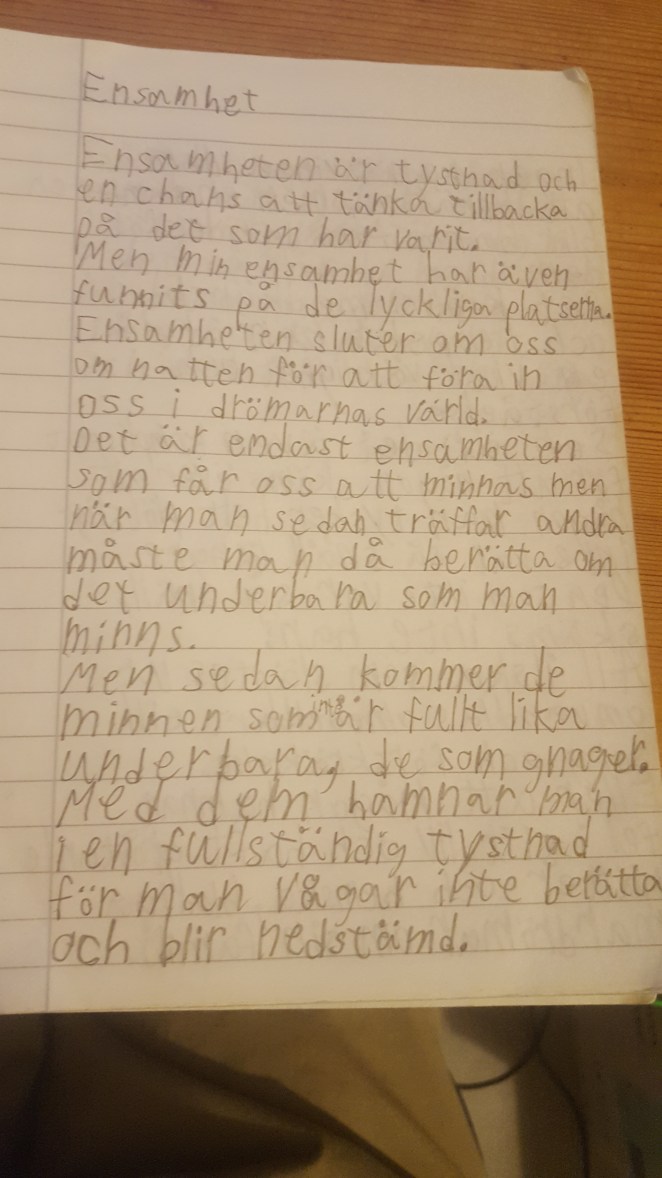 Ensamhet
Ensamheten är tystnad och
en chans att tänka tillbacka
på det som har varit.
Men min ensamhet har även
funnits på de lyckliga platserna.
Ensamheten sluter om oss
om natten för att föra in
oss i drömarnas värld.
Det är endast ensamheten
som får oss att minnas men
när man sedan träffar andra
måste man då berätta om
det underbara som man
minns.
Men sedan kommer de
minnen som inte är fullt lika
underbara, de som gnager.
Med dem hamnar man
i en fullständig tystnad
för man vågar inte berätta
och blir nedstämd.